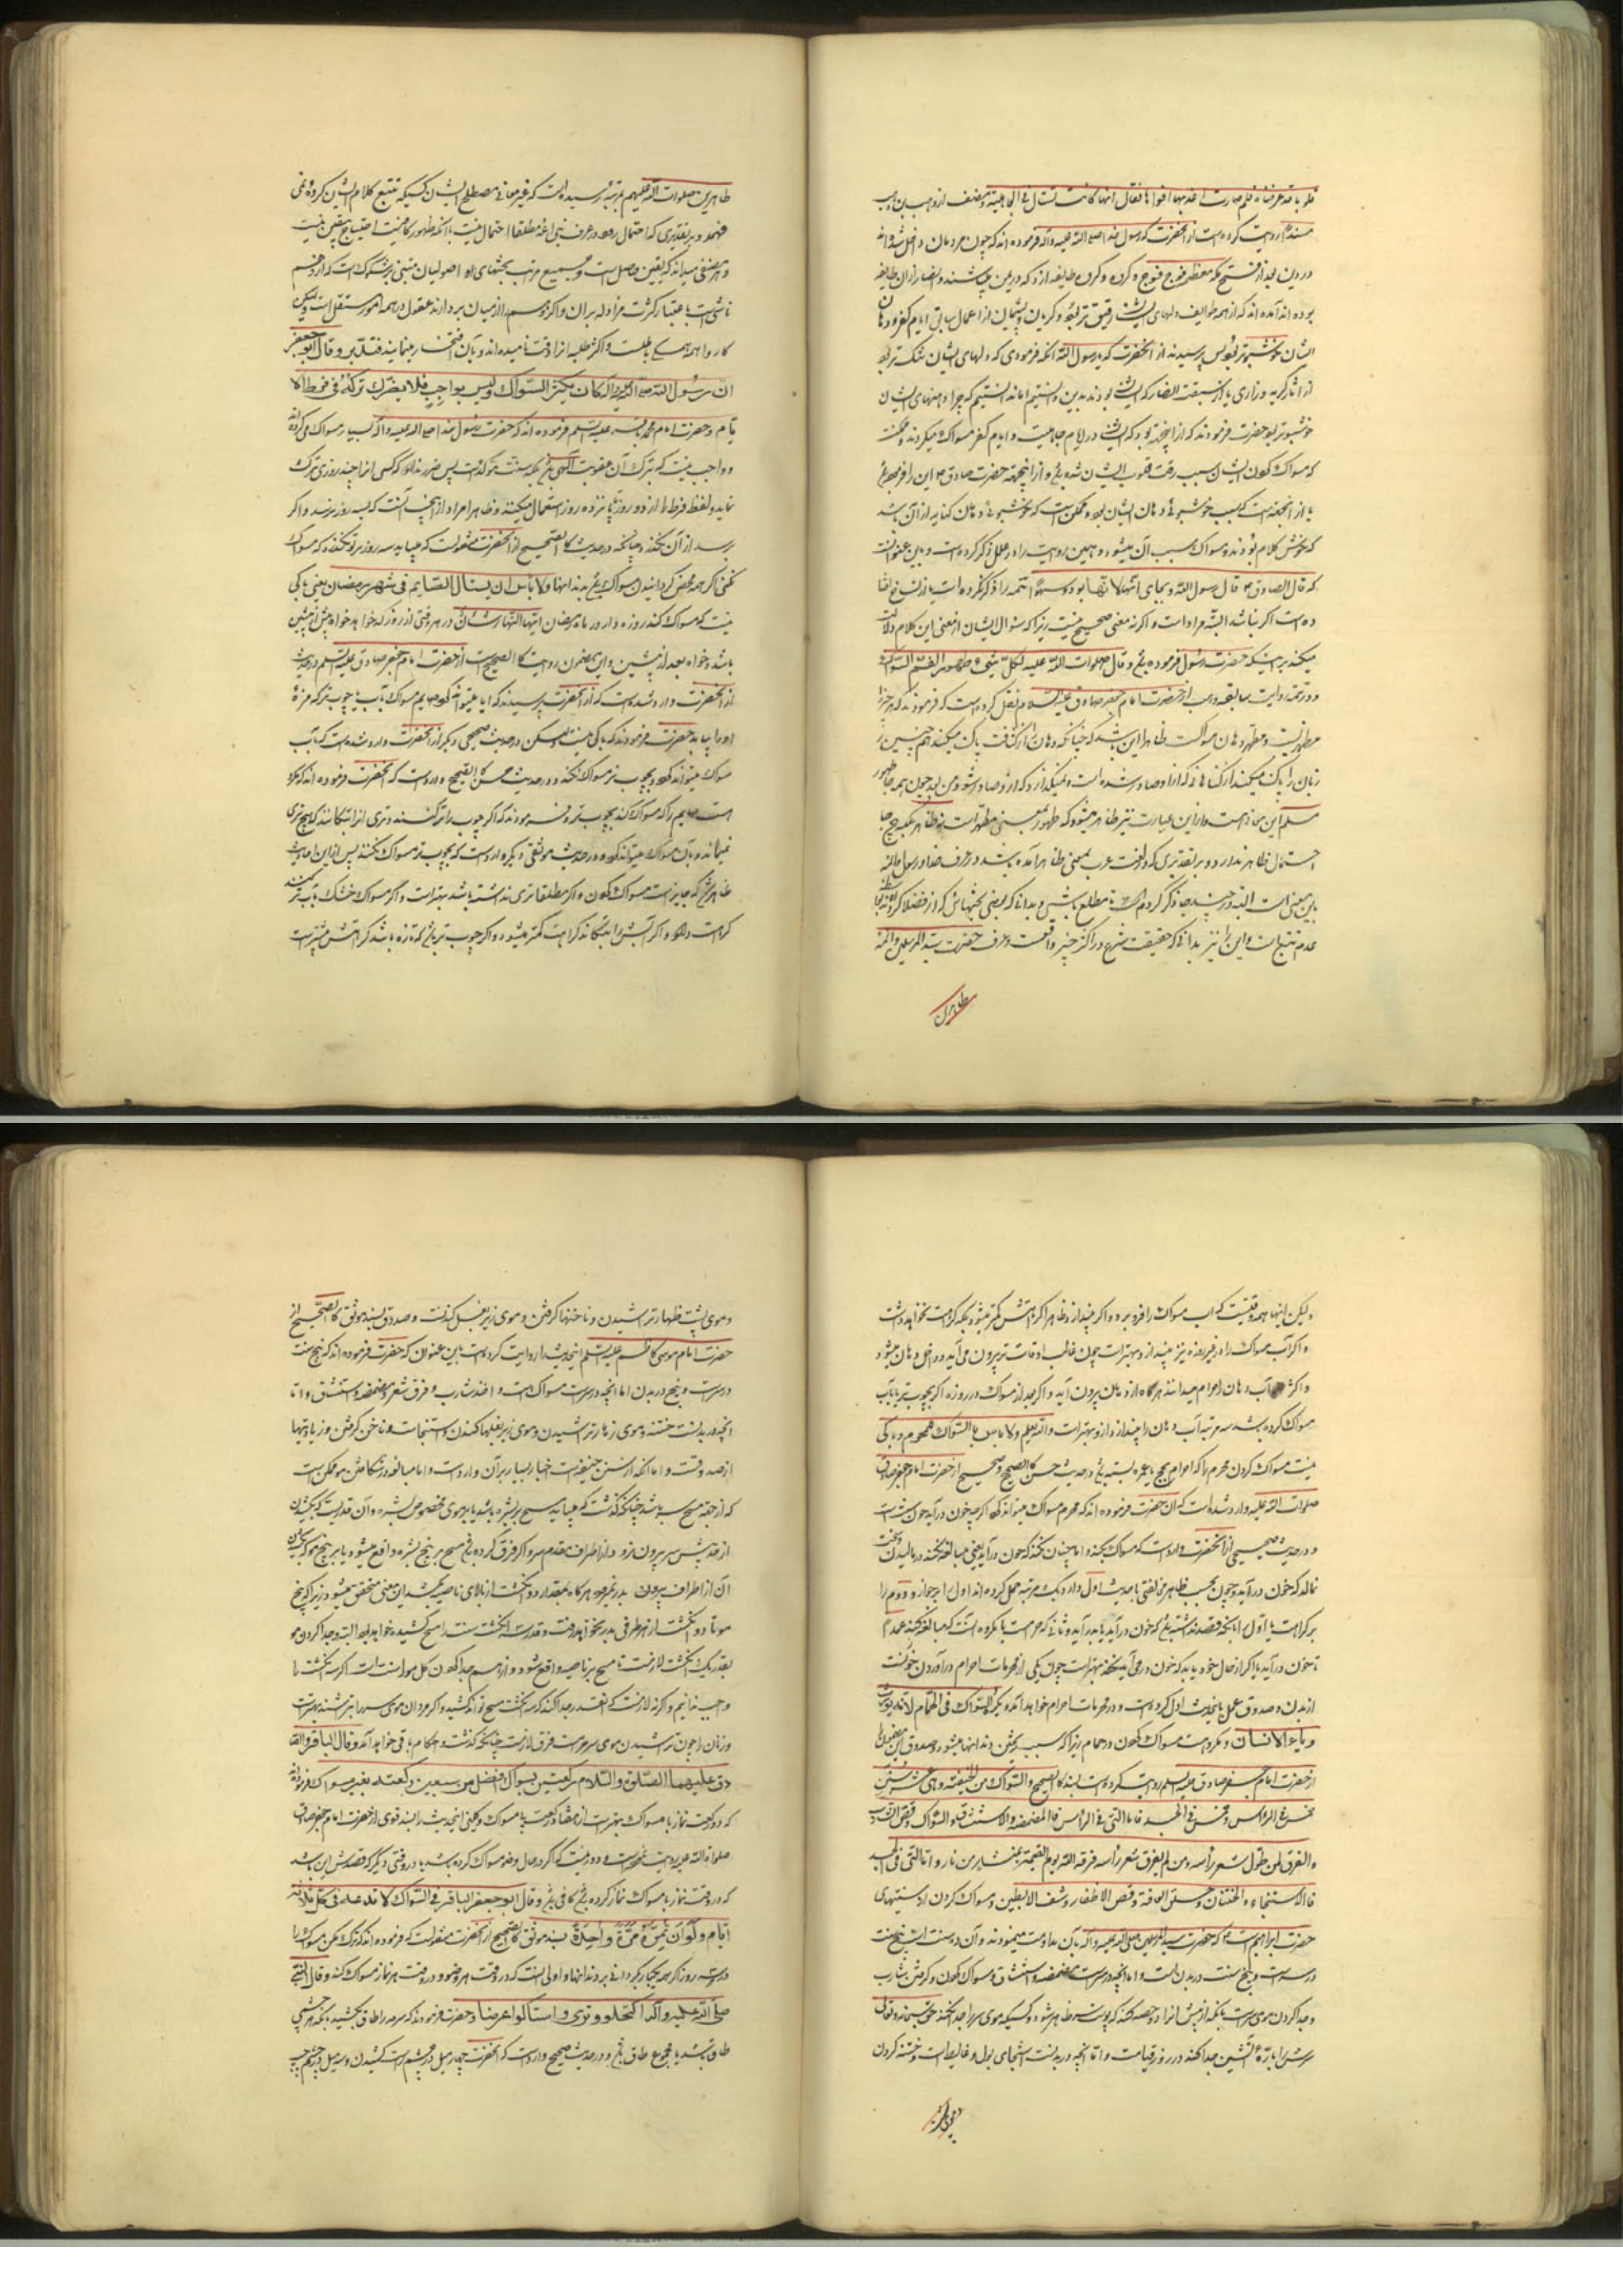 قلوبا قد عرفناه فلم صارت اعذبها افواها فقال انها كانت تستاك فی الجاهلیة
روایت کرده است از آنحضرت که رسول خدا صلی الله علیه وآله فرموده اند که چون مردمان داخل شدند
در دین بعد از فتح مکه معظمه فوج فوج و کرده و کرده طایفه ازد که در یمن می باشند
بوده اند آمده اند که از همه طوایف دلهای ایشان رقیق تر بود و کریان و پشیمان از اعمال سابق ایام کفر و دهان
ایشان خوشبوتر بود پس پرسیدند از آنحضرت که یا رسول الله آنکه فرمودی که دلهای ایشان تنک تر بود
از آثار کریه و زاری یا از سبقت انصار که ایشان بودند بدین دانستیم اما ندانستیم که چرا دهنهای ایشان
خوشبوتر بود حضرت فرمودند که از اینجهة بود که ایشان در ایام جاهلیت و ایام کفر مسواک میکردند و ممکنست
که مسواک کردن ایشان سبب رقت قلوب ایشان شده باشد و از اینجهة حضرت صادق ع این را فرموده باشد
یا از اینجهة است که سبب خوشبوئی دهان ایشان بود و ممکن است که خوشبوئی دهان کنایه از آن باشد
که خوش کلام بودند و مسواک سبب آن میشود و همین روایت را در علل ذکر کرده است و باین عنوانست
که قال الصادق ع قال رسول الله و بجای انتهی
ده است اکر نباشد البته مراد است و اکر نه معنی صحیح نیست زیرا که سؤال ایشان از معنی این کلام دلالت
میکند بر اینکه حضرت رسول فرموده باشد و قال صلوات الله علیه لکل شیء طهور و طهور الفم السواک
و در تتمه روایت سابقه وهب از حضرت امام جعفر صادق علیه السلام نقل کرده است که فرمودند که هر چیز را
مطهریست و مطهر دهان مسواکست ظاهرا این باشد که چنانکه دهان را از کثافت پاک میکند همچنین
زبان را پاک میکند از کناهانی که از او صادر شده است و نمیکذارد که از او صادر شود
مسلم این معانی است و از این عبارت نیز ظاهر میشود که طهور بمعنی مطهر است نه ظاهر
احتمال ظاهر ندارد و بر تقدیری که در لغت عرب بمعنی طاهر آمده باشد در عرف خدا و رسول و ائمه
باین معنی است البته و در چند جا ذکر کردم این را تا مطلع باشی و بدانی که بعضی بحثها ناشی که از فضلا کرده اند از
عدم تتبعات و این را نیز بدانی که حقیقت شرع در اکثر چیز واقعست و عرف حضرت سید المرسلین و ائمه
طاهرین
طاهرین صلوات الله علیهم بمرتبه رسیده است که غیر معانی مصطلح ایشان کسیکه تتبع کلام ایشان کرده نمی
فهمد و بر تقدیری که احتمال رود در عرف نبی اغذ مطلقا احتمال نیست با آنکه ظهور کافیست احتیاج بیقین نیست
و هر منصفی میداند که یقین حاصل است و جمیع مراتب بحثهای اصولیان مبنی بر شکوک است که از وهم
ناشی است باعتبار کثرت مزاوله بر آن و اکر وسم از میان بردارند عقول در همه امور مستقل است و لیکن
کار و همه بباطلست و اکثر طلبه انرا دقت نامیده اند و بآن افتخار مینمایند فتدبر و قال ابو جعفر
ان رسول الله صلی الله علیه وآله کان یکثر السواک و لیس بواجب فلا یضرک ترکه فی فرط الا
یام و حضرت امام محمد باقر علیه السلم فرموده اند که حضرت رسول خدا صلی الله علیه وآله بسیار مسواک می کرده اند
و واجب نیست که بترک آن عقوبت الهی باشد بلکه سنت مؤکد است پس ضرر ندارد که کسی انرا چند روزی ترک
نماید و لفظ فرط را از دو روز تا پانزده روز استعمال میکنند و ظاهرا مراد از اینجا آنست که بسه روز نرسد و اکر
رسد از آن نکذرد چنانکه در حدیث کالصحیح از آنحضرت منقولست که میباید سه روز بر تو نکذرد که مسواک
نکنی اکر همه محض کردانیدن مسواک باشد بدندانها و لا باس ان یستاک الصایم فی شهر رمضان یعنی باکی
نیست که مسواک کند روزه دار در ماه رمضان ای النهار شاء در هر وقتی از روز که خواهد خواه پیش از پیشین
باشد و خواه بعد از پیشین و این مضمون روایت کالصحیح است از حضرت امام جعفر صادق علیه السلم در حدیث
از آنحضرت وارد شده است که از آنحضرت پرسیدند که ایا میتواند که صایم مسواک بآب یا چوب تر که مزهٔ
او را یابد حضرت فرمودند که باکی نیست و لیکن در حدیث صحیحی دیکر از آنحضرت وارد شده است که بآب
مسواک میتواند کرد و بچوب تر مسواک نکند و در حدیث حسن کالصحیح وارد است که آنحضرت فرموده اند که مکروه
است صایم را که مسواک کند بچوب تر و فرمودند که اکر چوب را تر کنند و تری انرا بتکانند که هیچ تری
نماند و بآن مسواک میتواند کرد و در حدیث موثقی دیکر وارد است که بچوب تر مسواک نکنند پس از این احادیث
ظاهر شد که جایز است مسواک کردن و اکر مطلقا تری نداشته باشد بهتر است و اکر مسواک خشک بآب تر کنند
کراهت دارد و اکر آبش را بتکاند کراهت کمتر میشود و اکر چوب تر باشد که تازه باشد کراهتش بیشتر است
ولیکن اینها همه وقتیست که آب مسواک را فرو برد و اکر بیندازد ظاهرا کراهتش کمتر میشود بلکه کراهت نخواهد داشت
و اکر آب مسواک را در غیر روزه نیز بیندازد بهتر است چون غالب اوقات بو بیرون می آید و داخل دهان میشود
و اکثر آب دهان را حرام میدانند هر کاه از دهان بیرون آید و اکر بعد از مسواک در روزه اکر بچوب تر یا بآب
مسواک کرده باشد سه مرتبه آب دهان را بیندازد از او بهتر است و الله یعلم و لا باس بالسواک للمحرم و باکی
نیست مسواک کردن محرم را که احرام بحج یا عمره بسته باشد در حدیث حسن کالصحیح و صحیح از حضرت امام جعفر صادق
صلوات الله علیه وارد شده است که آن حضرت فرموده اند که محرم مسواک میتواند کرد اکر چه خون در آید
و در حدیث صحیحی از آنحضرت وارد است که مسواک بکند و اما چنان نکند که خون در آید یعنی مبالغه نکند در مالیدن
نمالد که خون در آید و چون بحسب ظاهر مخالفتی با حدیث اول دارد یک مرتبه حمل کرده اند اول را بر جواز و دوم را
بر کراهت یا اول را بانکه قصد نداشته باشد که خون در آید
تا خون در آید یا اکر از حال خود یابد که خون در می آید نکند بهتر است چون یکی از محرمات احرام در آوردن خونست
از بدن و صدوق عمل باین حدیث اول کرده است و در محرمات احرام خواهد آمد و یکره السواک فی الحمام لانه یورث
وباء الاسنان و مکروه است مسواک کردن در حمام زیرا که سبب ریختن دندانها میشود و صدوق این مضمون را
از حضرت امام جعفر صادق علیه السلم روایت کرده است بسند کالصحیح و السواک من الحنیفیة و هی عشر سنن
خمس فی الراس و خمس فی الجسد فاما التی فی الراس فالمضمضة و الاستنشاق و السواک و قص الشارب
و الفرق لمن طول شعر راسه و من لم یفرق شعر راسه فرقه الله یوم القیمة بمنشار من نار و اما التی فی الجسد
فالاستنجاء و الختان و حلق العانة و قص الاظفار و نتف الابطین و مسواک کردن از سنتهای
حضرت ابراهیم است ع که حضرت سید المرسلین صلی الله علیه وآله بآن مداومت مینمودند و آن ده سنت است پنج سنت
در سر است و پنج سنت در بدن است و اما آنچه در سر است مضمضه و استنشاق و مسواک کردن و کرفتن شارب
و جدا کردن موی سر است بانکه از پیش انرا دو حصه کند که پوست سر ظاهر شود و کسیکه موی سر را جدا نکند حق سبحانه و تعالی
سرش را باره آتشین جدا کند در روز قیامت و اما آنچه در بدنست استنجای بول و غایط است و ختنه کردن
و موی پشت
و موی پشت ظهار تراشیدن و ناخنها کرفتن و موی زیر بغل کندنست و صدوق بسند موثق کالصحیح از
حضرت امام موسی کاظم علیه السلم اینحدیث را روایت کرده است باین عنوان که حضرت فرموده اند که پنج سنت
در سر است و پنج در بدن اما آنچه در سر است مسواک است و اخذ شارب و فرق شعر و مضمضه و استنشاق و اما
آنچه در بدنست ختنه و موی زهار تراشیدن و موی زیر بغلها کندن و استنجاست و ناخن کرفتن و زیادتیها
از صدوقست و اما آنکه از سنن حنیفه است اخبار بسیار بر آن وارد است و اما مبالغه در شکافتن مو ممکن است
که از جهة مسح سر باشد چنانکه کذشت که میباید مسح بر بشره باشد یا بر موی مخصوص بشره
از حد پیش سر بیرون نرود و از اطراف مقدم سر و اکر فرق کرده باشد مسح بر بیخ بشره واقع میشود یا بر بیخ مو که بکشیدن
آن از اطراف بیرون بدر نمیرود هر کاه بمقدار دو انکشت از بالای ناصیه بکشد این معنی متحقق میشود زیرا که بیخ
مو تا دو انکشت از هر طرفی بدر نخواهد رفت و قدر سه انکشت سنت را مسح کشیده خواهد بود البته و جدا کردن مو
بقدر یک انکشت لازمست تا مسح بر ناصیه واقع شود و از هم جدا کردن کل مو سنت است اکر سه انکشت را
واجب ندانیم و اکر نه لازمست که آنقدر جدا کند که سه انکشت مسح تواند کشید و اکر مردان موی سر را بتراشند بهتر است
و زنان را چون تراشیدن موی سر حرامست فرق لازمست چنانکه کذشت و احکام باقی خواهد آمد و قال الباقر و الصا
دق علیهما الصلوة و السلام رکعتین بسواک افضل من سبعین رکعة بغیر سواک فرموده اند
که دو رکعت نماز با مسواک بهتر است از هفتاد رکعت بی مسواک و کلینی اینحدیث را بسند قوی از حضرت امام جعفر صادق
صلوة الله علیه روایت نموده است و دور نیست که اکر در حال وضو مسواک کرده باشد یا در وقتی دیکر که قصدش این باشد
که در وقت نماز با مسواک نماز کرده باشد کافی باشد و قال ابو جعفر الباقر فی السواک لا تدعه فی کل ثلثة
ایام و لو ان تمره مرة واحدة بسند موثق کالصحیح از آنحضرت منقولست که فرموده اند که ترک مکن مسواک را
در سه روز اکر چه یکبار بکردانی بر دندانها و اولی آنست که در وقت هر وضو و در وقت هر نماز مسواک کند و قال النبی
صلی الله علیه وآله اکتحلوا وترا و استاکوا عرضا و حضرت فرمودند که سرمه را طاق بکشید بلکه هر چشمی
طاق باشد یا مجموع طاق باشد و در حدیث صحیح وارد است که آنحضرت چهار میل در چشم راست کشیدند و سه میل در چشم چپ